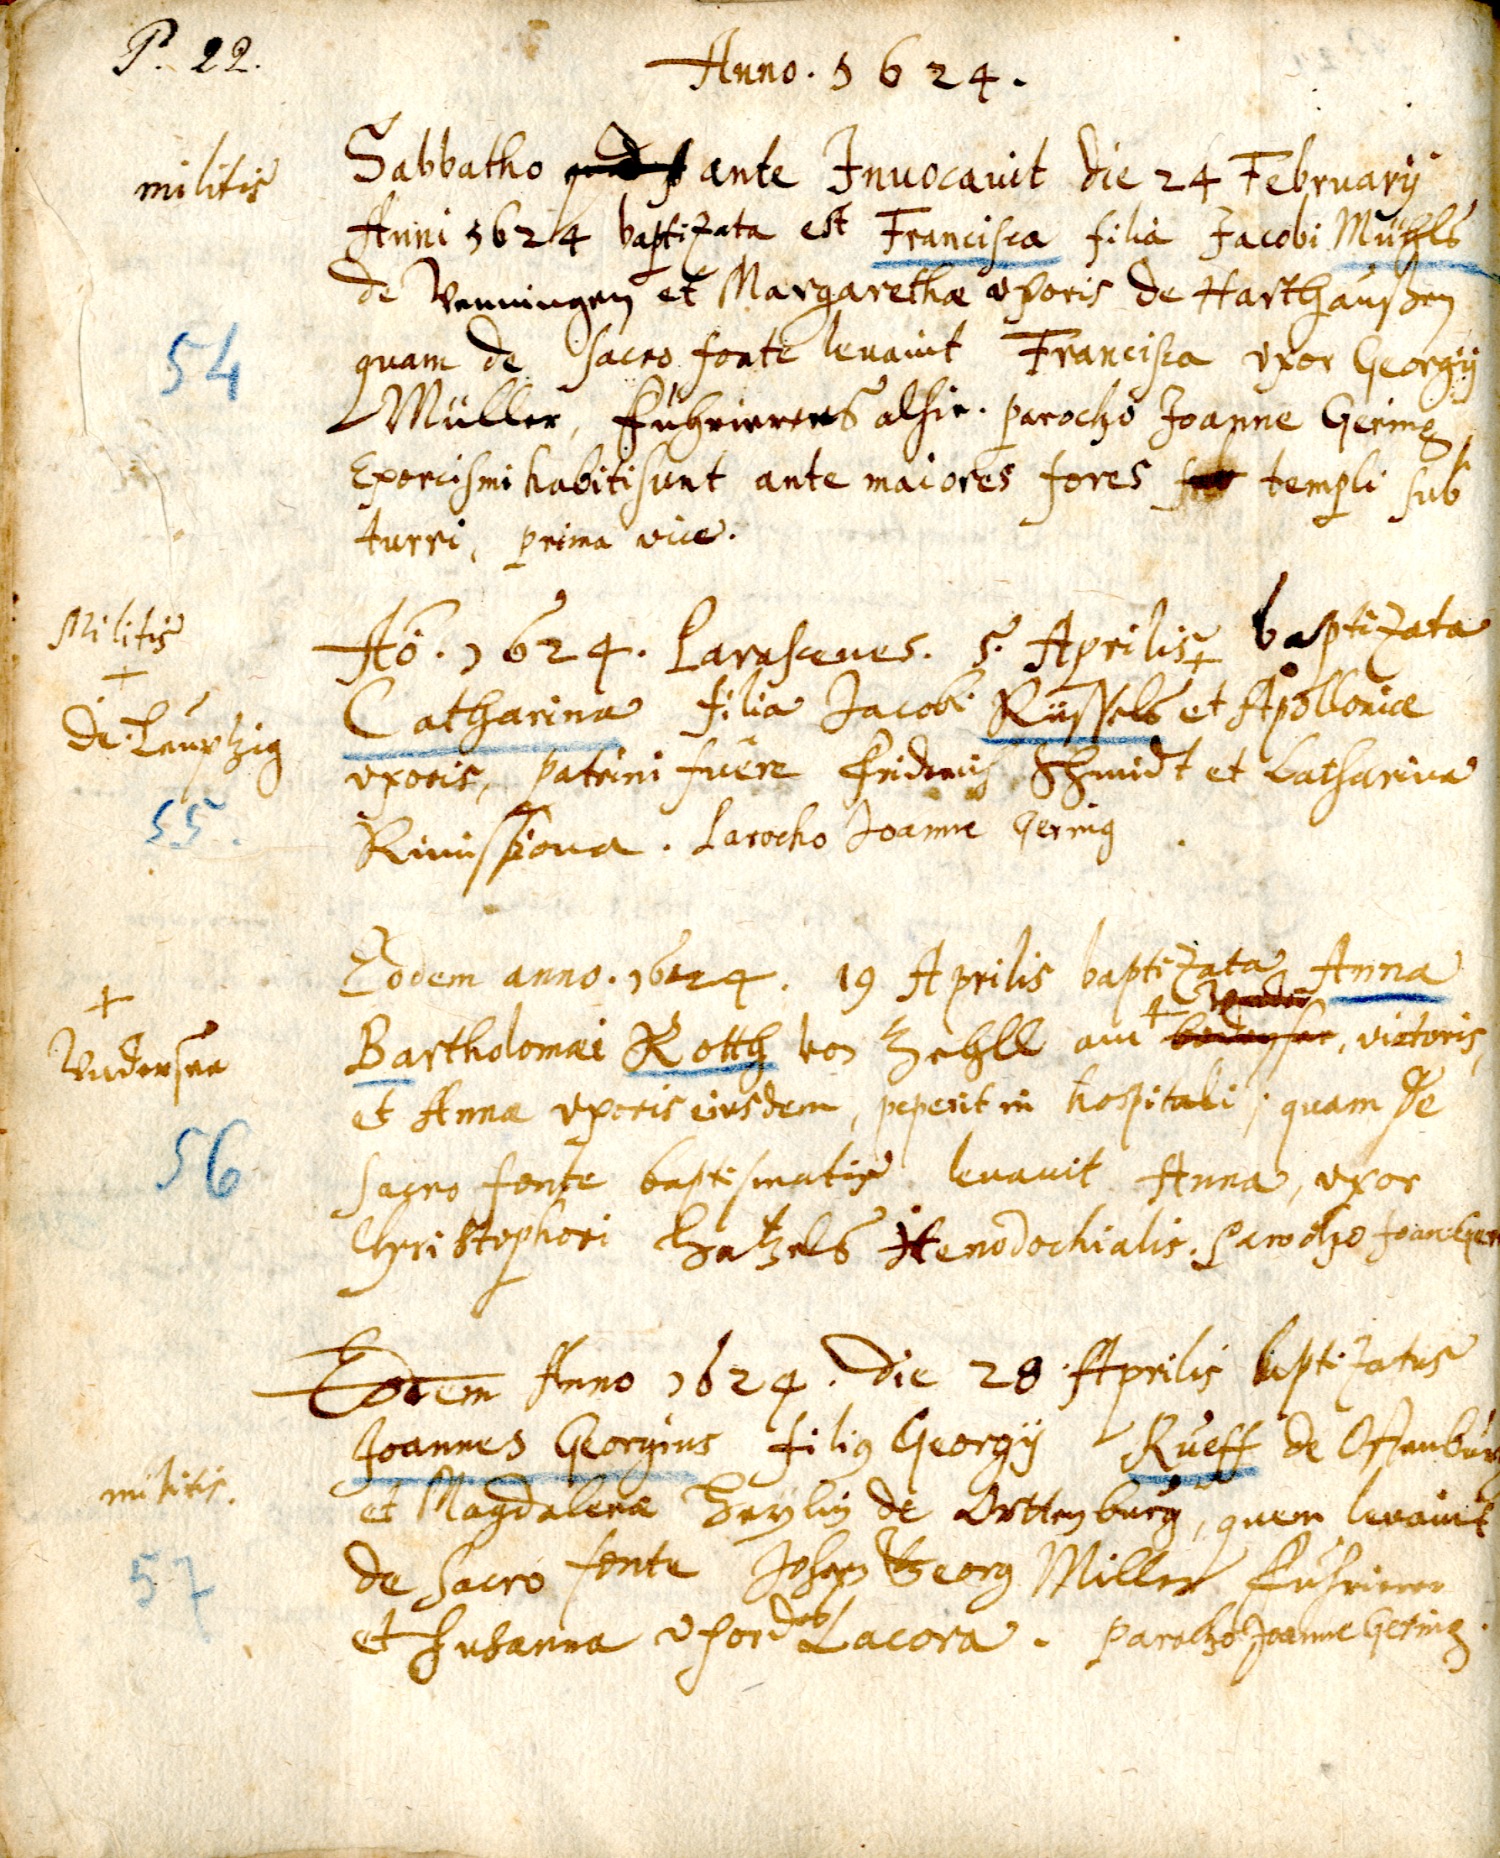 P. 22.
Anno. 1624.
militis
Sabbatho ante Inuocauit die 24 February
Anni 1624 baptizata est Francisca filia Jacobi Mühls
de Venningen et Margarethæ vxoris de Harthaußen
54
quam de sacro fonte leuauit Francisca vxor Georgÿ
Müller, Führierers alhie. parocho Joanne Gering
Exorcismi habiti sunt ante maiores fores templi sub
turri, prima vice.
Militis
Aõ. 1624. Parasceues. 5. Aprilis + baptizata
+
de Leuptzig
Catharina filia Jacobi Rüssels et Apolloniæ
vxoris, patrini fuere Friderich Schmidt et Catharina
55.
Parocho Joanne Gering
Eodem anno. 1624. 19 Aprilis baptizata Anna
+
Vndersee
Bartholomæi Rotth von Zehll am + vietoris,
et Annæ vxoris eiusdem, peperit in hospitali; quam de
56
sacro fonte baptismatis leuauit Anna, vxor
Christophori Hatzels Xenodochialis. Parocho Joan Ger
Eodem Anno 1624. die 28 Aprilis baptizatus
Joannes Georgius filius Georgÿ Rueff de Offenburg
militis.
et Magdalenæ Heylin de Orttenburg, quem leuauit
57
de sacro fonte Johan Georg Miller Führierer
et Susanna vxor deß Lacora. parocho Joanne Gering.